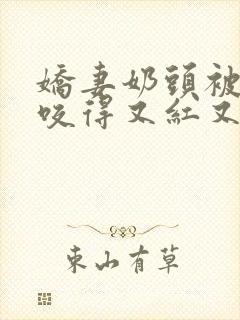 嬌妻奶頭被
咬得又紅又
東山有草